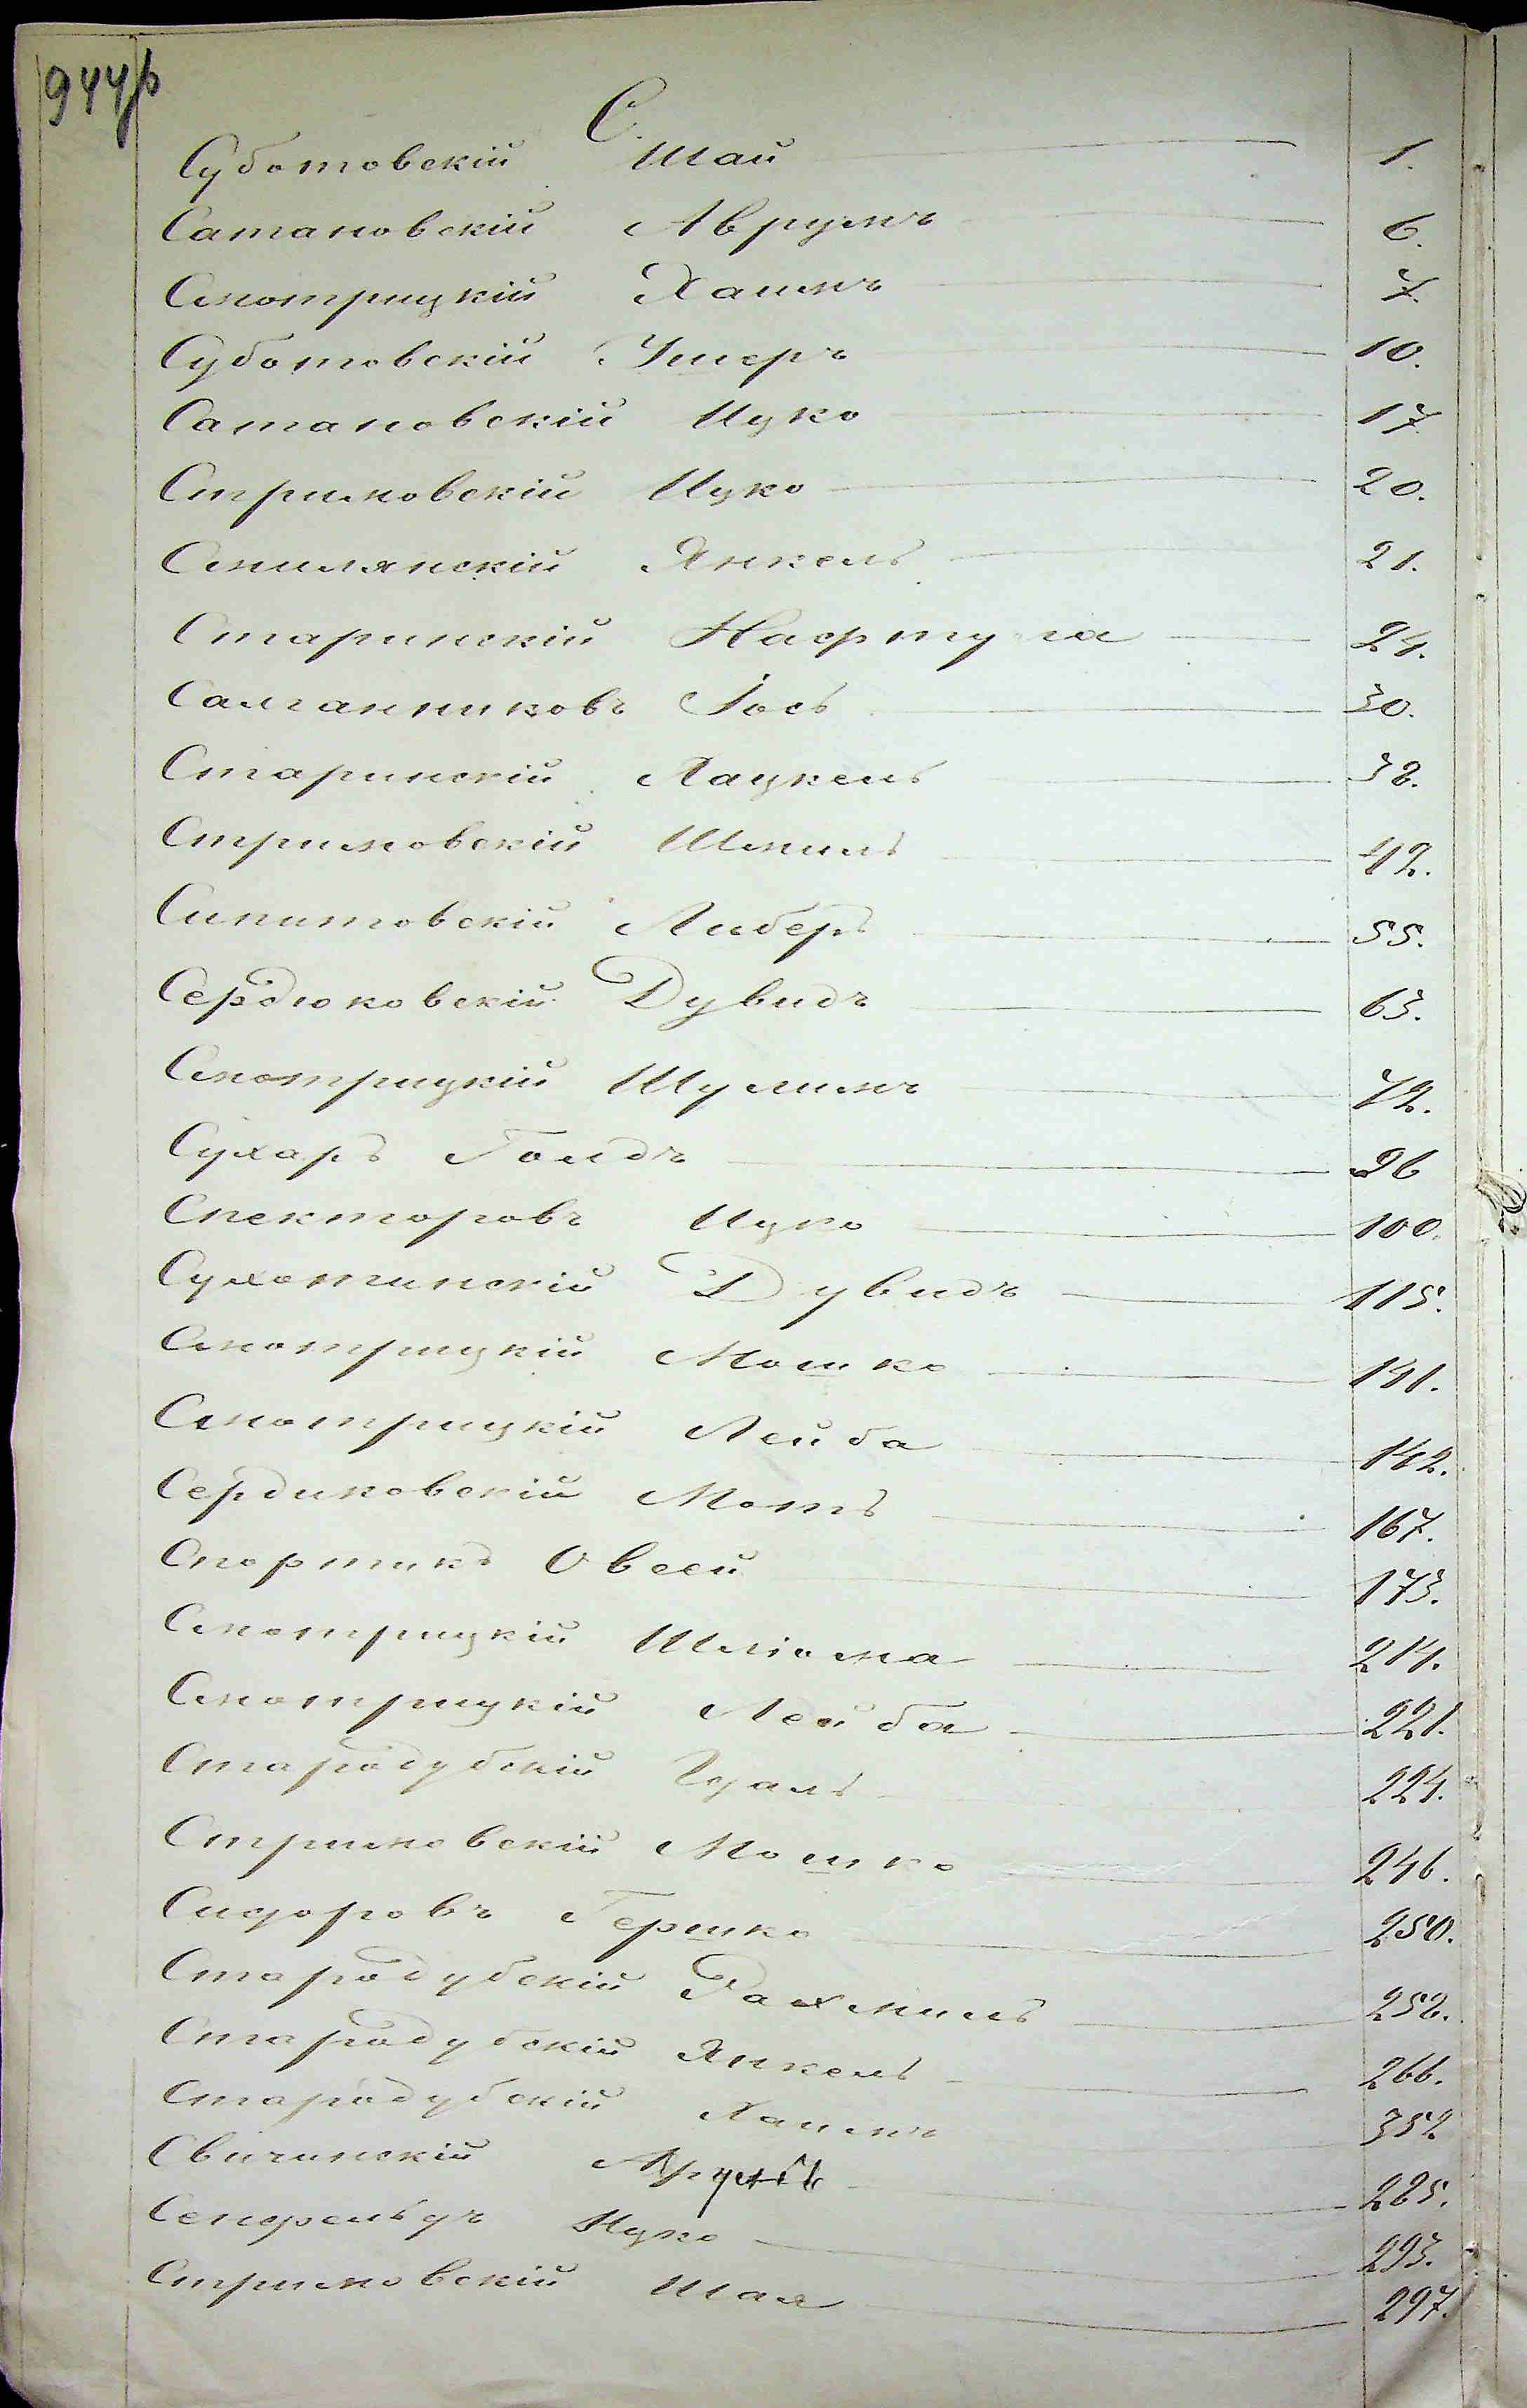 944 р
С.
Суботовскій Шай 1.
Сатановскій Аврумъ 6.
Смотрицкій Хаимъ 7.
Суботовскій Ушеръ 10.
Сатановскій Ицко 17
Стримовскій Ицко 20.
Смилянскій Янкель 21.
Старинскій Нафтула 24.
Салганниковъ Іось 30.
Старинскій Хацкель 38.
Стримовскій Шмиль 42.
Сипитовскій Либеръ 55.
Сердюковскій Дувидъ 63.
Смотрицкій Шулимъ 72.
Сухарь Гоидъ 96
Спекторовъ Ицко 100.
Сухотинскій Дувидъ 115.
Смотрицкій Мошко 141.
Смотрицкій Лейба 142.
Сердиковскій Моть 167.
Спортикъ Овсей 173.
Смотрицкій Шліома 214.
Смотрицкій Лейба 221.
Стародубскій Ицаль 224.
Стримовскій Мошко 246.
Сидоровъ Гершко 250.
Стародубскій Рахмиль 258.
Стародубскій Янкель 266.
Стародубскій Хаимъ 352
Свичинскій 285.
Ицко 293.
Стримовскій Шая 297.